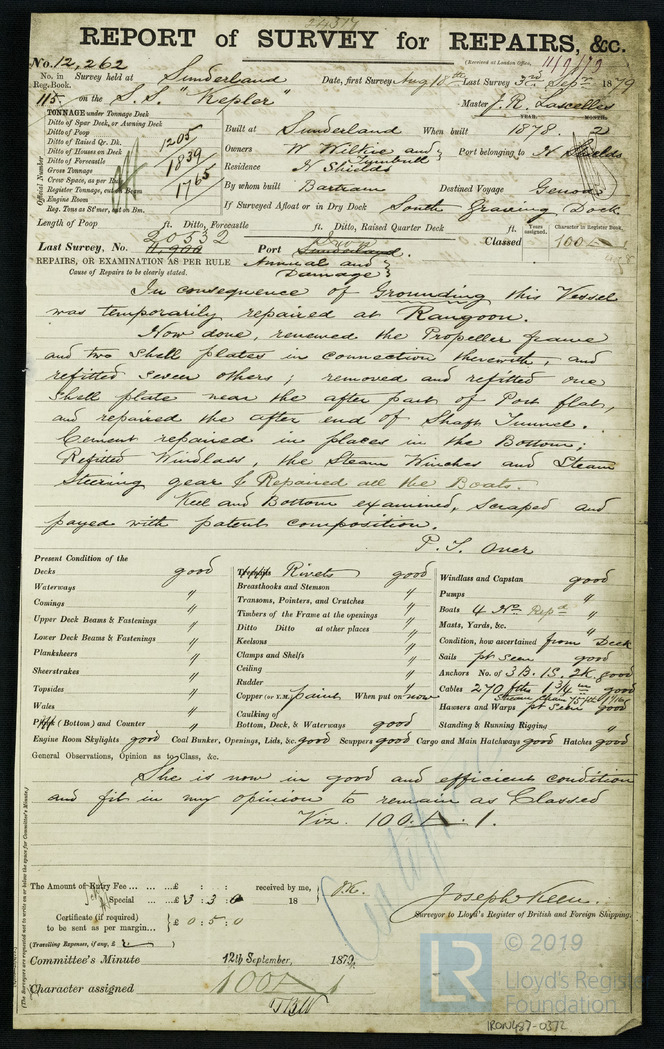 24317
REPORT of SURVEY for REPAIRS, &c.
(Received at London Office, 11/9/79
No. 12,262
No. in Reg. Book. Survey held at Sunderland Date, first Survey Aug 18th Last Survey 3rd Sepr 1879
115 on the S.S. "Kepler" Master J. R. Lascelles
TONNAGE under Tonnage Deck
Ditto of Spar Deck, or Awning Deck
Ditto of Poop
Ditto of Raised Qr. Dk. 1205
Ditto of Houses on Deck
Ditto of Forecastle
Gross Tonnage 1839
Crew Space, as per Rule
Register Tonnage, cut on Beam 1765
Engine Room
Reg. Tons as St'mer, cut on Bm.
Official Number
YEAR. MONTH.
Built at Sunderland When built 1878. 2
Owners W Wilkie and Turnbull Port belonging to N Shields
Residence N Shields
By whom built Bartram Destined Voyage Genoa
If Surveyed Afloat or in Dry Dock South Graving Dock
Length of Poop ft. Ditto, Forecastle ft. Ditto, Raised Quarter Deck ft.
Last Survey, No. 20532 Port Sunderland.
Classed Years assigned. Character in Register Book. 100 A 1
REPAIRS, OR EXAMINATION AS PER RULE Annual and Damage
Cause of Repairs to be clearly stated.
In consequence of Grounding this Vessel
was temporarily repaired at Rangoon.
Now done, renewed the Propeller frame
and two Shell plates in connection therewith, and
refitted seven others; removed and refitted one
Shell plate near the after part of Port flat,
and repaired the after end of Shaft Tunnel.
Cement repaired in places in the Bottom;
Refitted Windlass, the Steam Winches and Steam
Steering gear & Repaired all the Boats.
Keel and Bottom examined, Scraped and
payed with patent composition.
P. T. Over
Present Condition of the
Decks good
Waterways "
Comings "
Upper Deck Beams & Fastenings "
Lower Deck Beams & Fastenings "
Planksheers "
Sheerstrakes "
Topsides "
Wales "
(Bottom) and Counter "
Rivets good
Breasthooks and Stemson "
Transoms, Pointers, and Crutches "
Timbers of the Frame at the openings "
Ditto Ditto at other places "
Keelsons "
Clamps and Shelfs "
Ceiling "
Rudder "
Copper (or Y.M.) paint When put on now
Caulking of Bottom, Deck, & Waterways good
Windlass and Capstan good
Pumps "
Boats 4 No. Repd "
Masts, Yards, &c. "
Condition, how ascertained from Deck
Sails pt seen good
Anchors No. of 3B. 1S. 2K. good
Cables 270 fths 1 3/4 in good
Hawsers and Warps pt seen good
Standing & Running Rigging "
Engine Room Skylights good Coal Bunker, Openings, Lids, &c. good Scuppers good Cargo and Main Hatchways good Hatches good
General Observations, Opinion as to Class, &c.
She is now in good and efficient condition
and fit in my opinion to remain as Classed
Viz. 100. A. 1.
The Amount of Entry Fee ... £ : : received by me,
Special ... £ 3 : 3 : 0 18
Certificate (if required) to be sent as per margin... £ 0 : 5 : 0
(Travelling Expenses, if any, £
Joseph Keen.
Surveyor to Lloyd's Register of British and Foreign Shipping.
Committee's Minute 12th September, 1879.
Character assigned 100 A 1
(The Surveyors are requested not to write on or below the space for Committee's Minute.)
LR © 2019
Lloyd's Register
Foundation
IRON487-0372